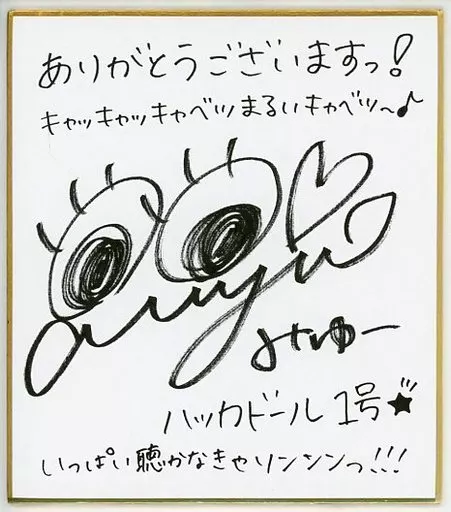 ありがとうございますっ!
キャッキャッキャベツまるいキャベツ〜♪
みゅー
ハッカドール1号★
いっぱい聴かなきゃソンソンっ!!!